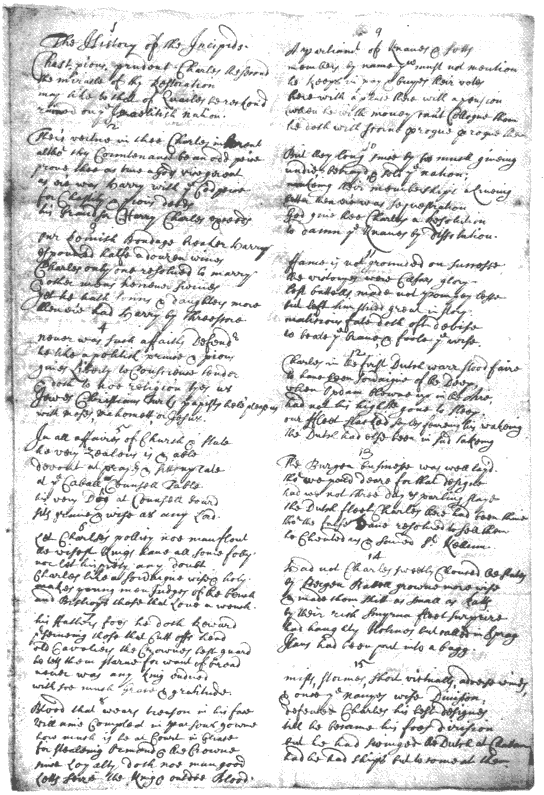 1
The History of the Incipids.
Chast, pious, prudent Charles the second
the miracle of thy Restoration
may like to that of Quailes be reckond
rained on yͤ Israelitish nation.
2
Their vertue in thee Charles inherent
altho' thy Countenance be an odd peice
prove thee as true a Gods vicegerent
as ere was Harry with yͤ Codpeice
for Chastity & pious deeds
his Grandsir Harry Charles exceeds
3
our Romish bondage breaker Harry
espoused halfe a douzen wives
Charles only one resolved to marry
& other mens he never
yet he hath sonns & daughters more
then ere had Harry by threescore
4
never was such a faiths Defendr
he like a politick prince & pious
gives liberty to Conscience tender
& doth to noe religion tye us
Jewes Christians Turks papists hele please us
with moses mahomett or Jesus.
5
In all affaires of Church & state
he very zealous is & able
devout at prayer & sitts up late
at yͤ Caball & Counsell Table
his very Dog at Counsell board
sits grave & wise as any Lord.
6
Let Charles pollicy noe man flout
the wisest Kings have all some folly
nor let his piety any doubt
Charles like a Soveraigne wise & holy
makes young men Judges of the bench
and Bishops those that love a wench.
7
his Fathers foes he doth reward
preserving those that cutt off head
old Cavaliers the Crownes best guard
he lets them starve for want of bread
never was any King endued
with soe much grace & gratitude.
8
Blood that wears treason in his face
Villaine Compleat in parsons gowne
how much is he at Court in Grace
for stealing ormond & the Crowne
since Loyalty doth noe man good
Letts seize the King & outdoe Blood.
9
A parliament of Knaves & sotts
members by name you must not mention
he keeps in pay & buyes their votes
here with a place there with a pension
when he with money cant Collogue them
he doth with scorne prorogue prorogue them
But they long since by too much giveing
undid betray'd & sold yͤ nation;
making their memberships a liveing
better then ere was sequestration
God give thee Charles a Resolution
to damne yͤ Knaves by dissolution.
Fame is not grounded on successe
tho victoryes were Cæsars glory
lost battells made not pompey lesse
but left him stiled great in story
malitious fate doth oft devise
to beate yͤ brave & foole yͤ wise.
12
Charles in the first Dutch warr stood faire
to have been soveraigne of the Deep
when opdam blowne up in the Aire,
had not his highness gone to sleep
our Fleet slack'd sayles fearing his wakeing
the Dutch had else been in sad takeing
13
The Bergen businesse was well layd
tho' we paid deare for that designe
had we not three days parling stayd
the Dutch fleet Charles there had been thine
tho' the false Dane resolved to sell them
he Cheated us & saved Skellum.
14
Had not Charles sweetly Choused the states
by Bergen Battell growne more wise
& made them shitt as small as Ratts
by their rich Smyrna fleet surprize
had haughty Holmes but called in Sprag
Hans had been put into a bagg.
15
mists, stormes, short victualls, adverse winds,
& once yͤ navyes wise Division,
defeated Charles his best designes
till he became his foes derision
but he had swinged the Dutch at Chatam
had he had ships but to come at them